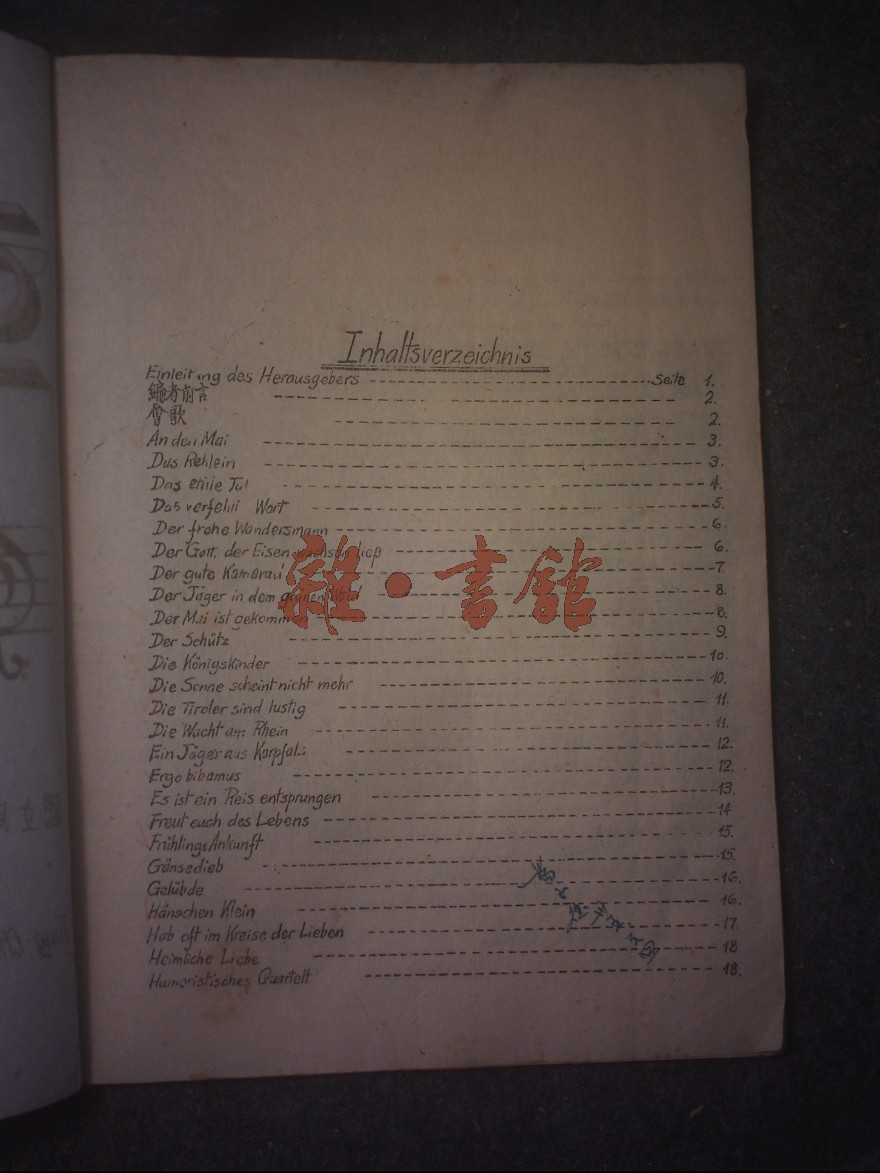 Inhaltsverzeichnis
Einleitung des Herausgebers Seite 1.
編者前言 2.
會歌 2.
An den Mai 3.
Das Rehlein 3.
Das stille Tal 4.
Das verfehlt Wort 5.
Der frohe Wandersmann 6.
Der Gott, der Eisen wachsen ließ 6.
Der gute Kamerad 7.
Der Jäger in dem grünen Wald 8.
Der Mai ist gekommen 8.
Der Schütz 9.
Die Königskinder 10.
Die Sonne scheint nicht mehr 10.
Die Tiroler sind lustig 11.
Die Wacht am Rhein 11.
Ein Jäger aus Korpfalz 12.
Ergo bibamus 12.
Es ist ein Reis entsprungen 13.
Freut euch des Lebens 14
Frühlings Ankunft 15.
Gänsedieb 15.
Gelübde 16.
Hänschen Klein 16.
Hab oft im Kreise der Lieben 17.
Heimliche Liebe 18
Humoristisches Quartett 18.
雜·書館
國立
Tung-Ch